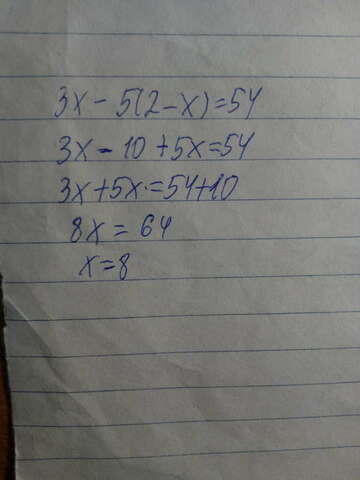 3x - 5(2-x)=54
3x - 10 + 5x=54
3x+5x=54+10
8x = 64
x=8